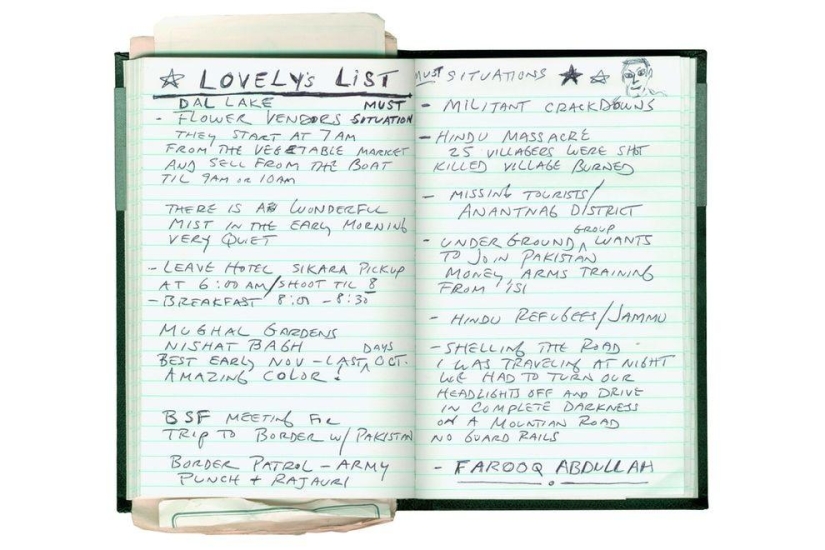 ☆ LOVELY'S LIST
DAL LAKE MUST
- FLOWER VENDORS SITUATION
THEY START AT 7 AM
FROM THE VEGETABLE MARKET
AND SELL FROM THE BOAT
TIL 9AM OR 10AM
THERE IS A WONDERFUL
MIST IN THE EARLY MORNING
VERY QUIET
- LEAVE HOTEL SIKARA PICKUP
AT 6:00 AM/SHOOT TIL 8
- BREAKFAST 8:00 - 8:30
MUGHAL GARDENS
NISHAT BAGH
BEST EARLY NOV - LAST DAYS OCT.
AMAZING COLOR!
BSF MEETING FOR
TRIP TO BORDER W/ PAKISTAN
BORDER PATROL - ARMY
PUNCH + RAJAURI
MUST SITUATIONS ★ ☆
- MILITANT CRACKDOWNS
- HINDU MASSACRE
25 VILLAGERS WERE SHOT
KILLED VILLAGE BURNED
- MISSING TOURISTS/
ANANTNAG DISTRICT
- UNDERGROUND GROUP WANTS
TO JOIN PAKISTAN
MONEY, ARMS TRAINING
FROM ISI
- HINDU REFUGEES/JAMMU
- SHELLING THE ROAD
I WAS TRAVELING AT NIGHT
WE HAD TO TURN OUR
HEADLIGHTS OFF AND DRIVE
IN COMPLETE DARKNESS
ON A MOUNTIAN ROAD
NO GUARD RAILS
- FAROOQ ABDULLAH